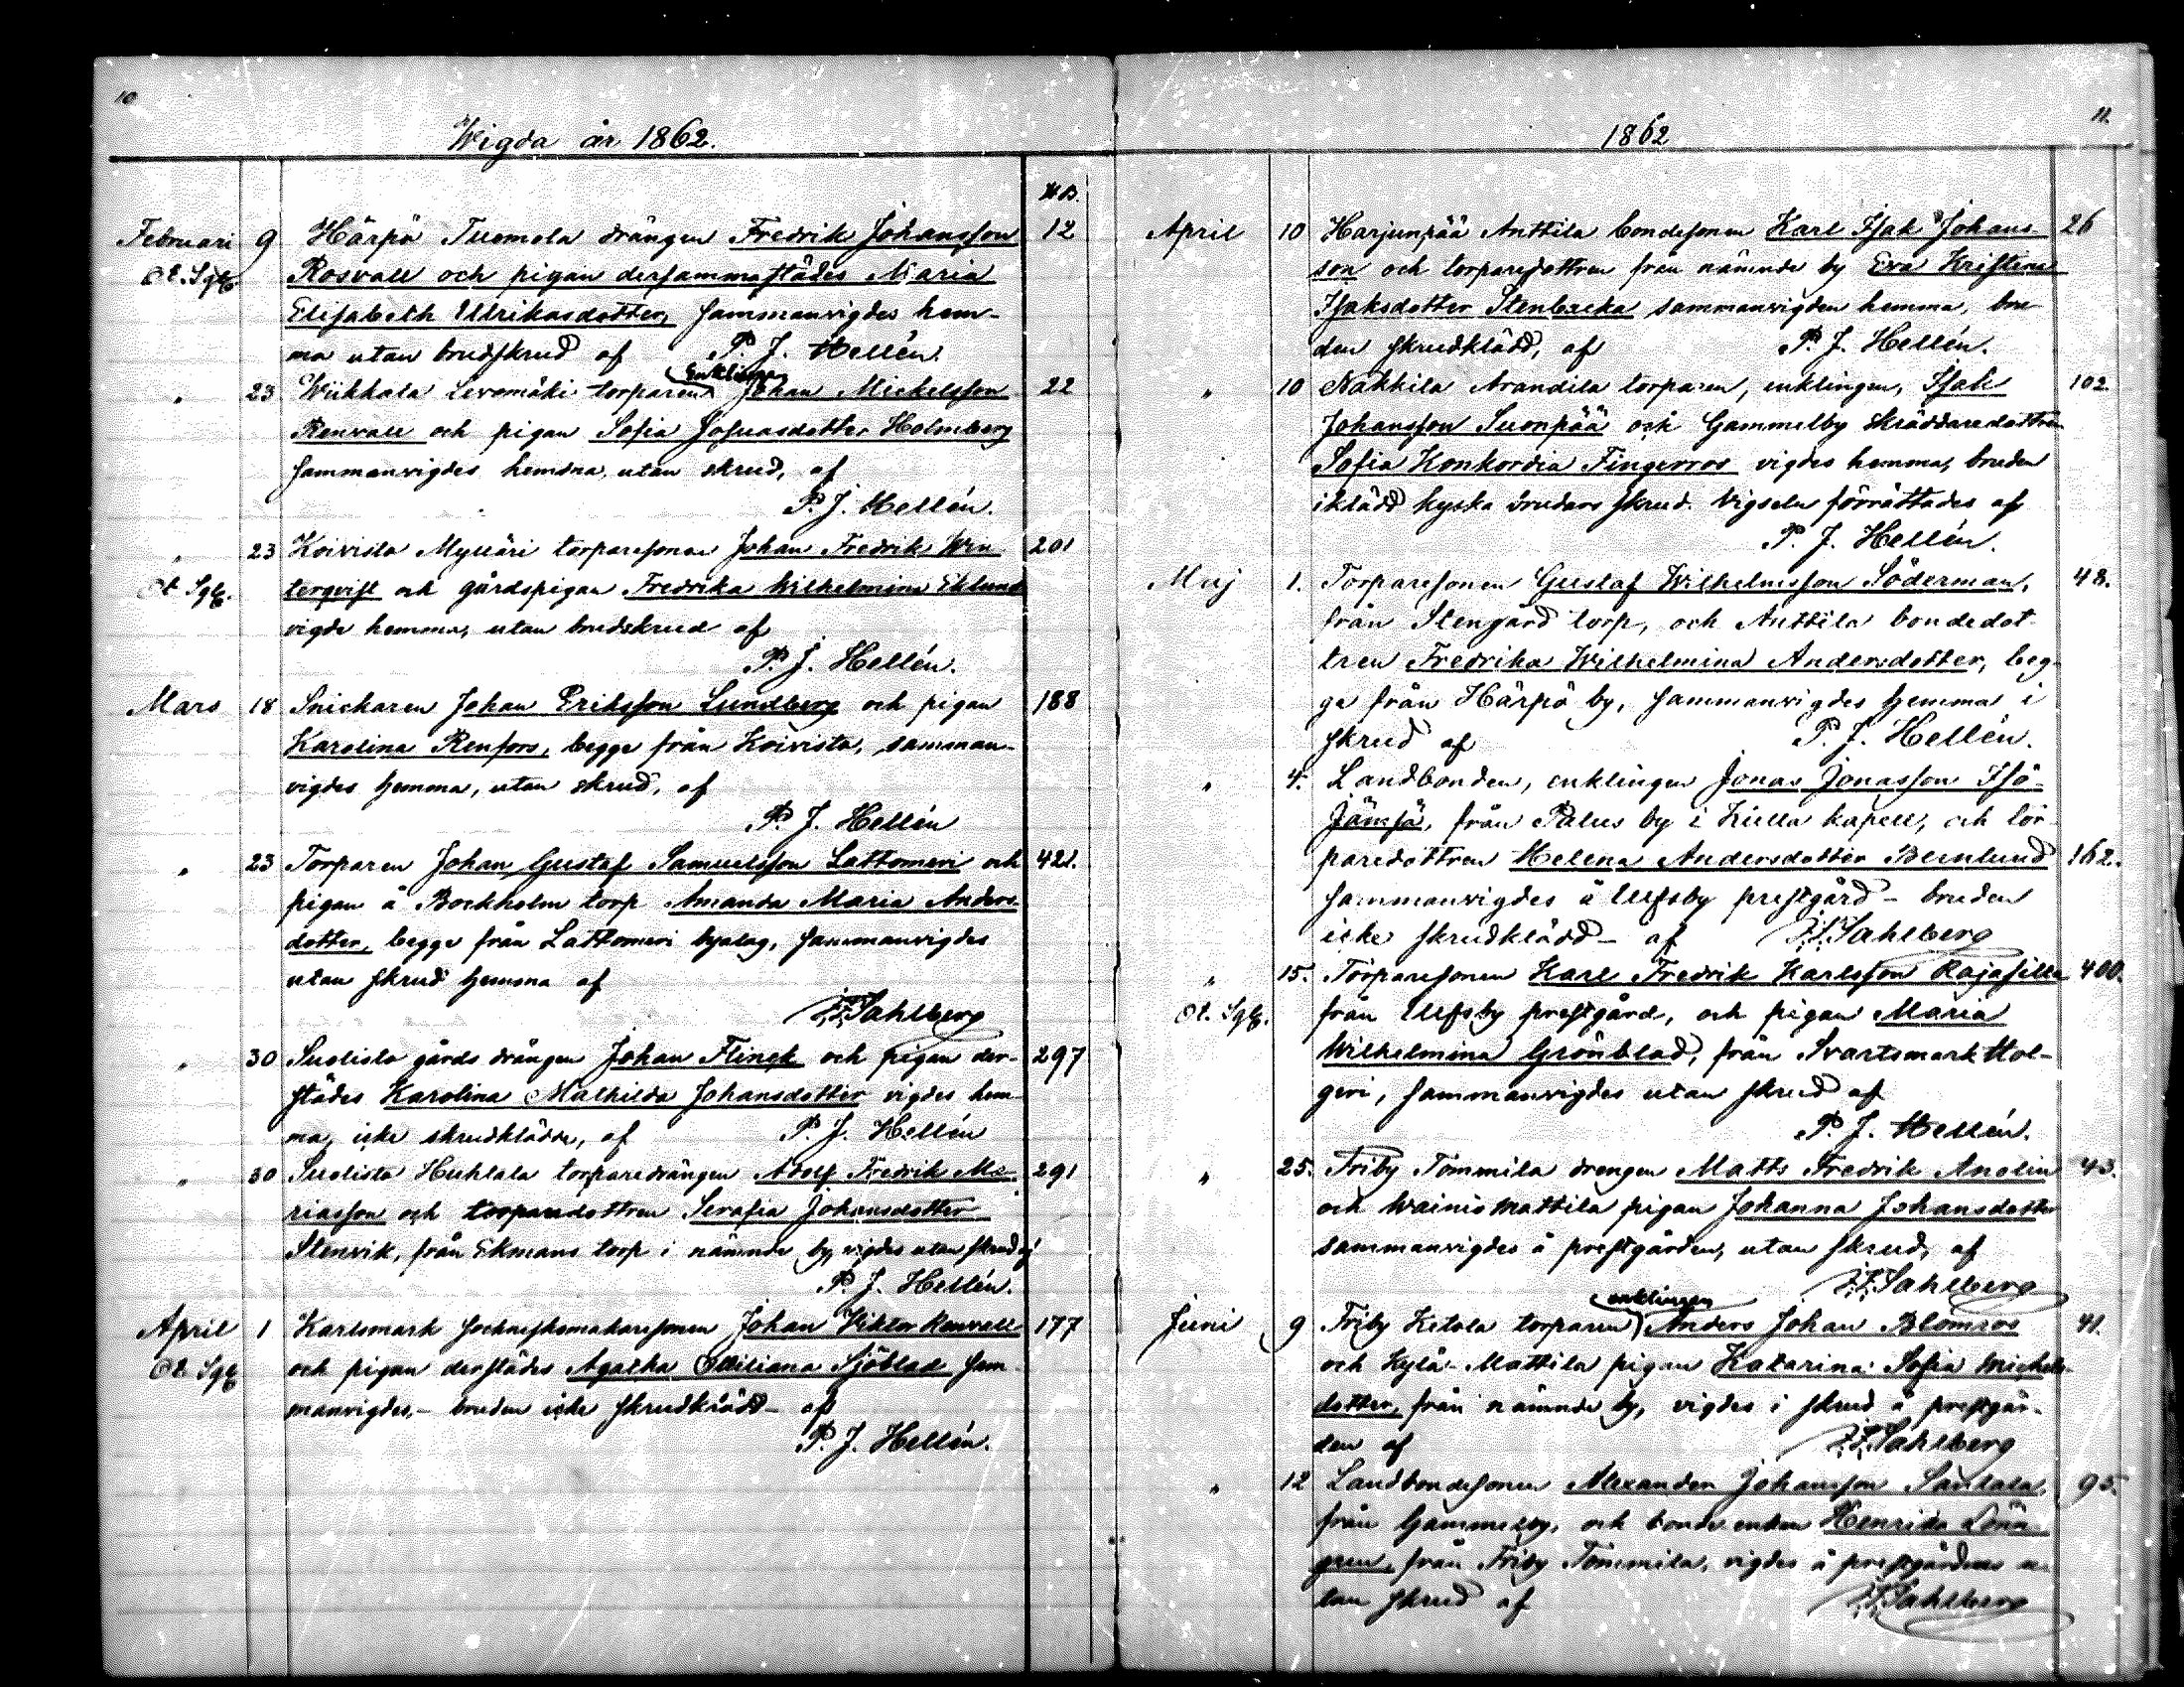 10
Wigda år 1862.
N.B.
Februari 9 Härpö Tuomola drängen Fredrik Johansson 12
Ot. Sgf. Rosvall och pigan dersammastädes Maria
Elisabeth Ullrikasdotter, sammanvigdes hem-
ma utan brudskrud af P. J. Hellén.
enklingen
" 23 Wiikkala Levomäki torparen Johan Mickelsson 22
Renvall och pigan Sofia Josuasdotter Holmberg
sammanvigdes hemma, utan skrud, af
P. J. Hellén.
" 23 Koivisto Mylläri torparesonen Johan Fredrik Win 201
Ot Sgf. terqvist och gårdspigan Fredrika Wilhelmina Eklund
vigde hemma, utan brudskrud af
P. J. Hellén.
Mars 18 Snickaren Johan Eriksson Lundberg och pigan 188
Karolina Renfors, begge från Koivisto, samman-
vigdes hemma, utan skrud, af
P. J. Hellén
" 23 Torparen Johan Gustaf Samuelsson Lattomeri och 421.
pigan å Bockholm torp Amanda Maria Anders
dotter, begge från Lattomeri byalag, sammanvigdes
utan skrud hemma af
Sahlberg
" 30 Suolisto gårds drängen Johan Flinck och pigan der- 297
städes Karolina Mathilda Johansdotter vigdes hem
ma, icke skrudklädde, af P. J. Hellén
" 30 Suolisto Huhtala torparedrängen Adolf Fredrik Ma- 291
riasson och torparedottren Serafia Johansdotter
Stenvik, från Ekmans torp i nämnde by, vigdes utan skrud af
P. J. Hellén.
April 1 Karlsmark Johan Viktor Renvall 177
Ot Sgf och pigan derstädes Agatha Ottiliana Sjöblad sam-
manvigdes, - bruden icke skrudklädd - af
P. J. Hellén.
11.
1862
April 10 Harjunpää Anttila bondesonen Karl Isak Johans- 26
son och torparedottren från nämnde by Eva Kristina
Isaksdotter Stenbacka sammanvigden hemma, bru-
den skrudklädd, af P. J. Hellén.
" 10 Nakkila Arandila torparen, enklingen, Isak 102.
Johansson Suonpää och Gammelby skräddaredottren
Sofia Konkordia Fingerroos vigdes hemma, bruden
iklädd kyska brudars skrud. Vigseln förrättades af
P. J. Hellén.
Maj 1. Torparesonen Gustaf Wilhelmsson Söderman, 48.
från Stengård torp, och Anttila bondedot
tren Fredrika Wilhelmina Andersdotter, beg-
ge från Härpö by, sammanvigdes hemma i
skrud af P. J. Hellén.
" 4. Landbonden, enklingen Jonas Jonasson Iso-
Jämsä, från Palus by i Kiulla kapell, och tor
paredottren Helena Andersdotter Bernlund 162.
sammanvigdes å Ulfsby prestgård - bruden
icke skrudklädd - af Sahlberg
" 15. Torparesonen Karl Fredrik Karlsson Rajasilta 400.
Ot. Sgf. från Ulfsby prestgård, och pigan Maria
Wilhelmina Grönblad, från Svartsmark Hol-
geri, sammanvigdes utan skrud af
P. J. Hellén.
" 25. Friby Tommila drengen Matts Fredrik Anolin 43.
och Wainio Mattila pigan Johanna Johansdotter
sammanvigdes å prestgården, utan skrud, af
Sahlberg
enklingen
Juni 9 Friby Ketola torparen Anders Johan Blomros 41.
och Kylä-Mattila pigan Katarina Sofia Michels-
dotter, från nämnde by, vigdes i skrud å prestgår-
den af Sahlberg
" 12 Landbondesonen Alexander Johansson Santala, 95.
från Gammelby, och bonde enkan Henrika Lönn-
gren, från Friby Tommila, vigdes å prestgården u-
tan skrud af Sahlberg